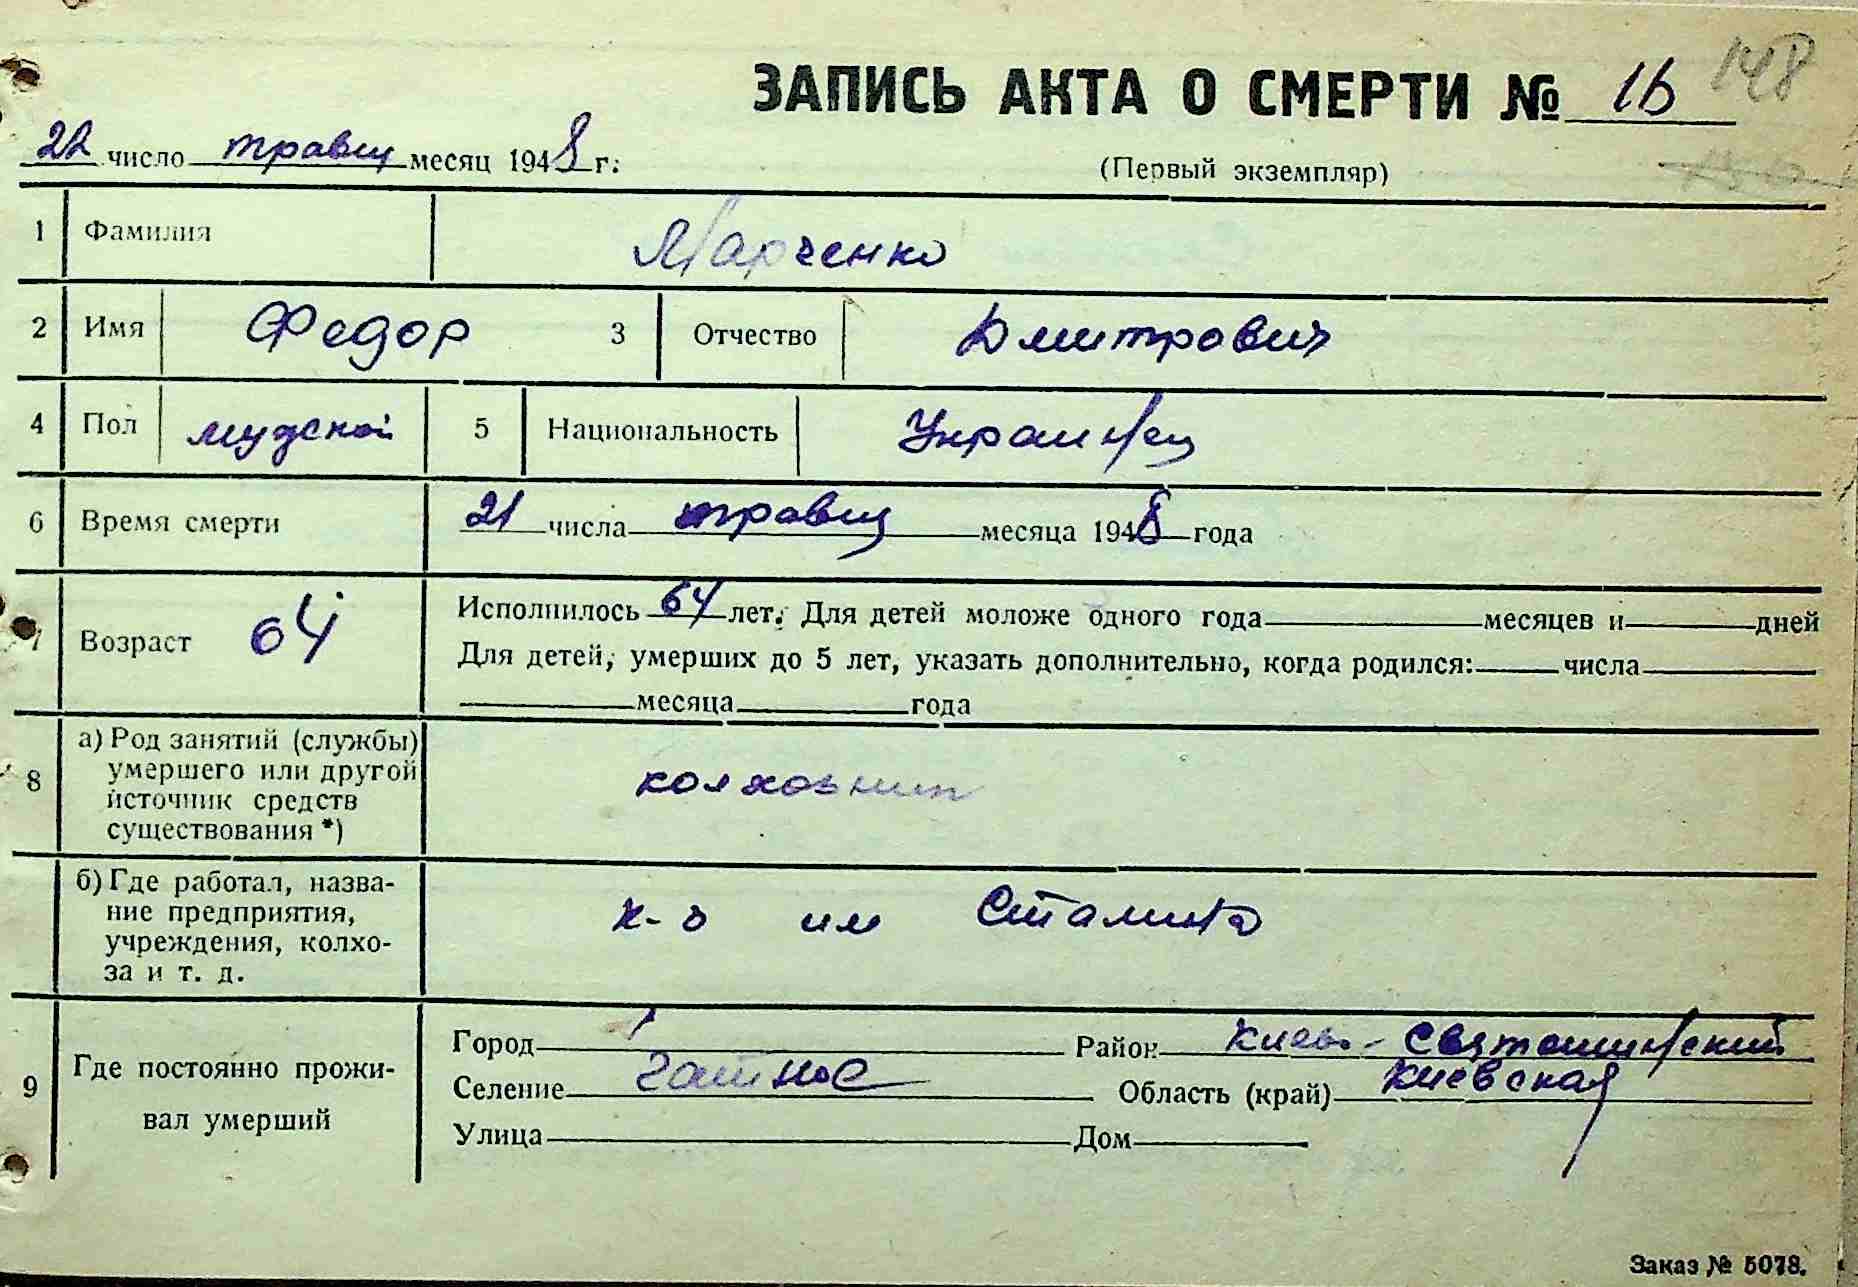 ЗАПИСЬ АКТА О СМЕРТИ № 16 148
22 число травня месяц 1948 г.
(Первый экземпляр)
1 Фамилия Марченко
2 Имя Федор 3 Отчество Дмитрович
4 Пол мужской 5 Национальность Украинец
6 Время смерти 21 числа травня месяца 1948 года
7 Возраст 64 Исполнилось 64 лет. Для детей моложе одного года месяцев и дней
Для детей, умерших до 5 лет, указать дополнительно, когда родился: числа
месяца года
8 а) Род занятий (службы)
умершего или другой
источник средств
существования *) колхозник
б) Где работал, назва-
ние предприятия,
учреждения, колхо-
за и т. д. к-з им Сталина
9 Где постоянно прожи-
вал умерший
Город Район Киево-Святошинский
Селение Гатное Область (край) Киевская
Улица Дом
Заказ № 5078.